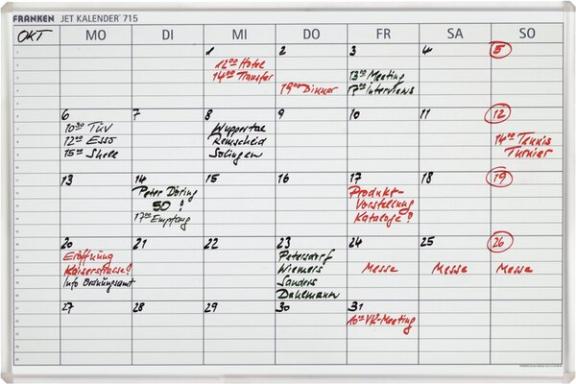 FRANKEN JET KALENDER 715
OKT MO DI MI DO FR SA SO
1 2 3 4 5
12⁰⁰ Hotel
14⁰⁰ Transfer
19⁰⁰ Dinner
13⁰⁰ Meeting
17⁰⁰ Interviews
6 7 8 9 10 11 12
10³⁰ TÜV
12⁰⁰ Esso
15⁰⁰ Shell
Wuppertal
Remscheid
Solingen
14⁰⁰ Tennis
Turnier
13 14 15 16 17 18 19
Peter Döring
50 !
17⁰⁰ Empfang
Produkt-
Vorstellung
Kataloge?
20 21 22 23 24 25 26
Eröffnung
Kaiserstrasse!
Info Ordnungsamt
Petersdorf
Wiemers
Sanders
Dahlemann
Messe Messe Messe
27 28 29 30 31
10⁰⁰ VK-Meeting